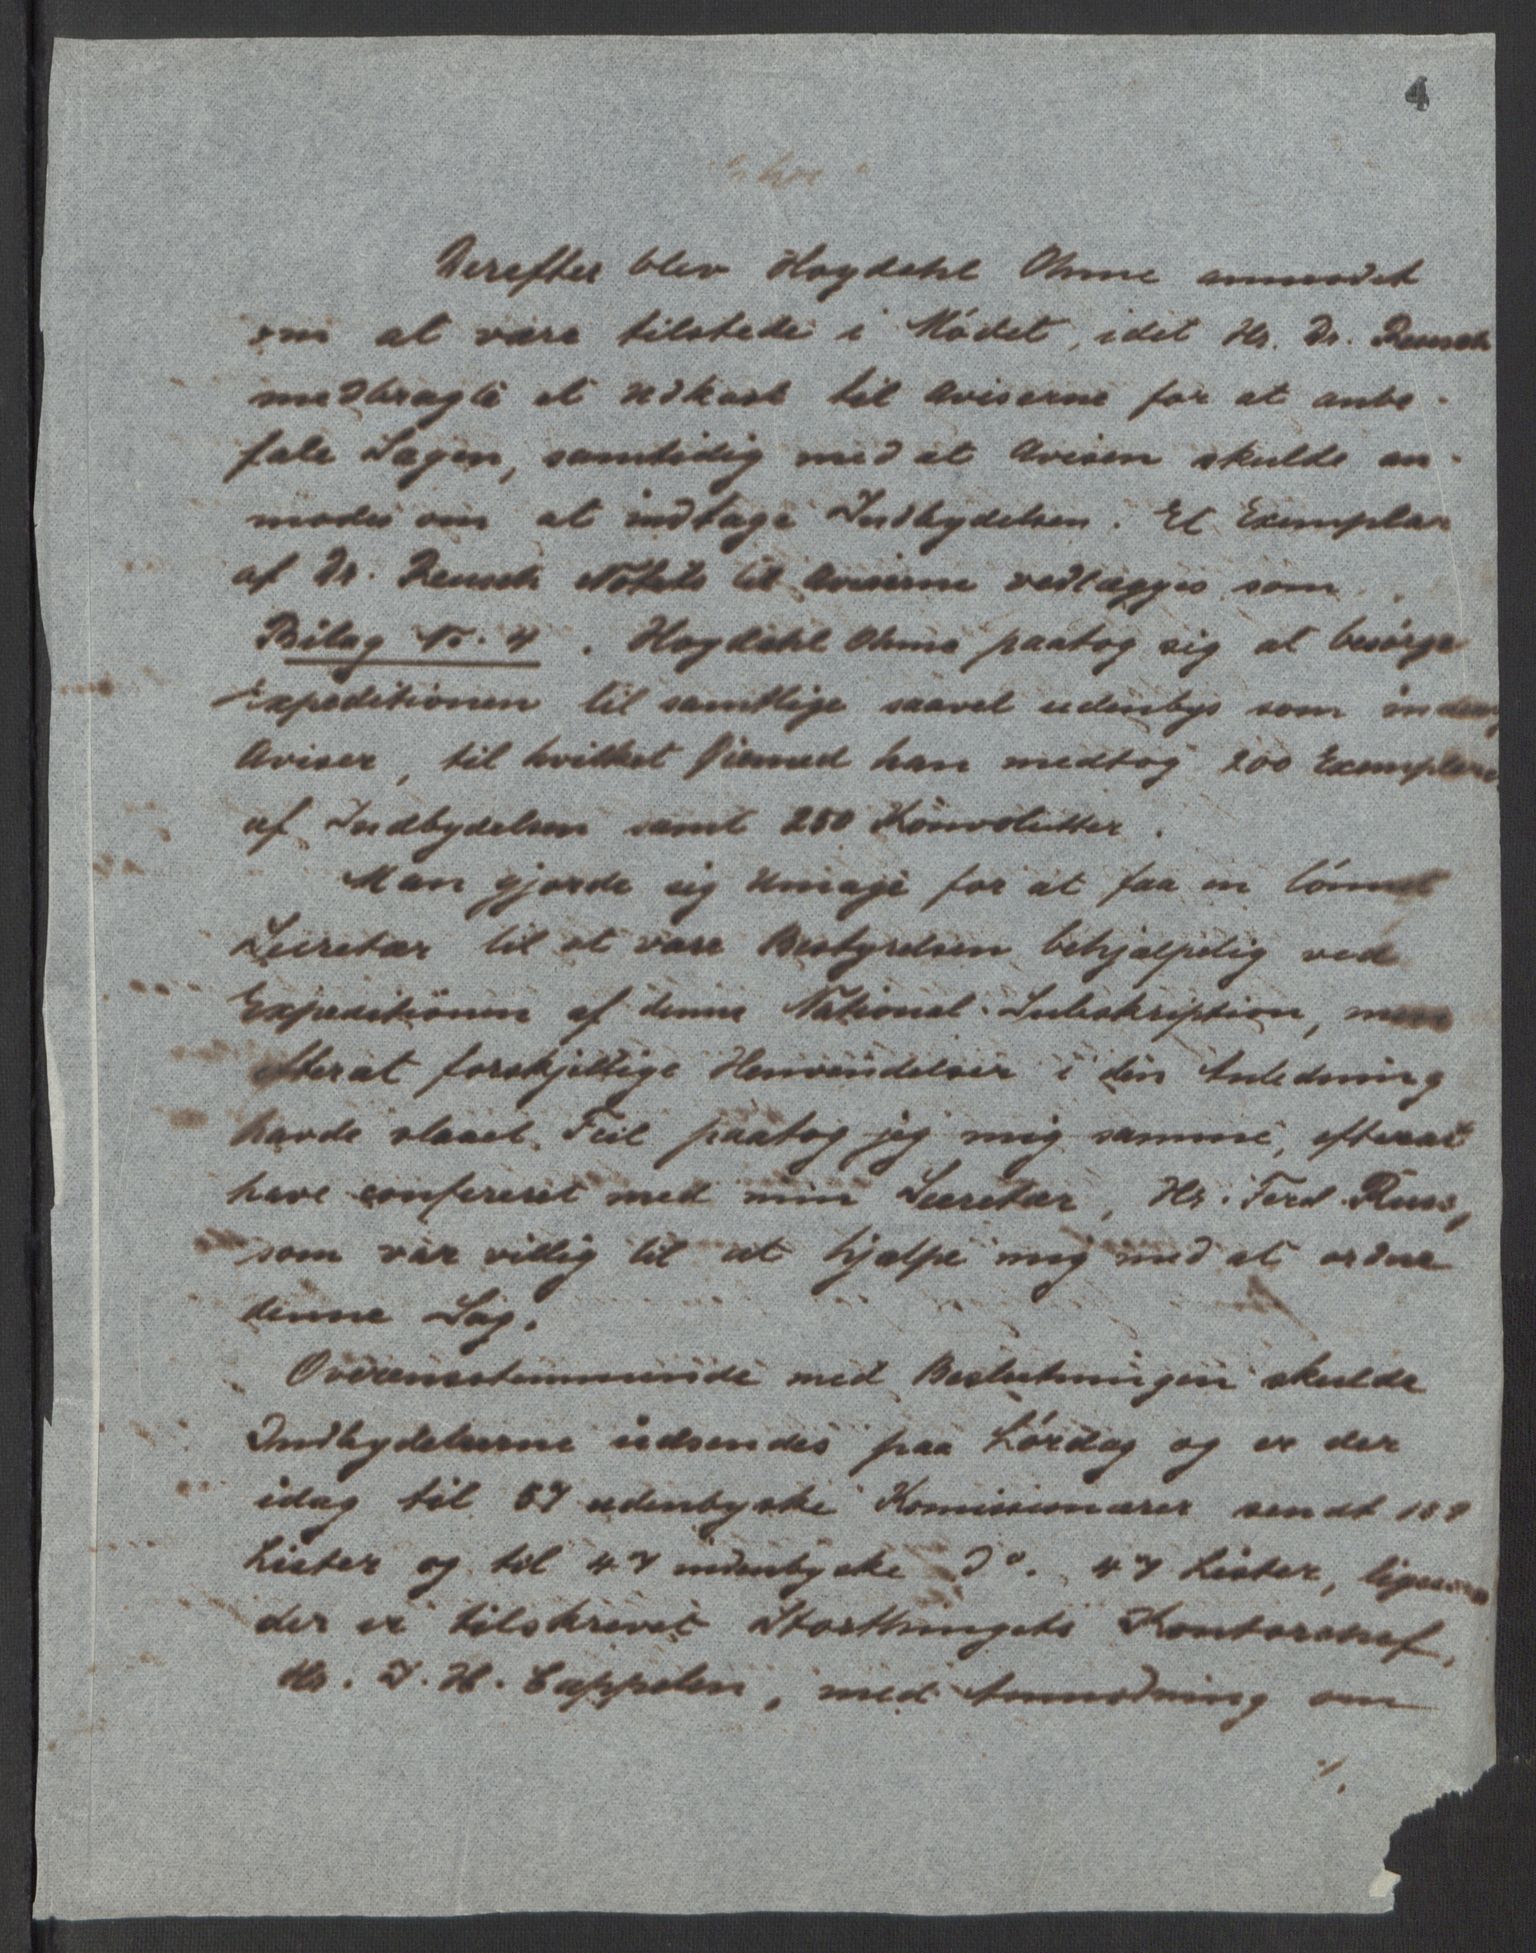 4
Derefter blev Hogdahl Ohme anmodet
om at være tilstede i Mødet, idet Hr. Dr. Reusch
medbragte et Udkast til Aviserne for at anbe-
fale Sagen, samtidig med at Avisen skulde an-
modes om at indtage Indbydelsen. Et Exemplar
af Dr. Reusch Notits til Aviserne vedlægges som
Bilag No. 4. Hogdahl Ohme paatog sig at besørge
Expeditionen til samtlige saavel udenbys som indenbys
Aviser, til hvilket Øiemed han medtog 200 Exemplarer
af Indbydelsen samt 250 Konvolutter.
Man gjorde sig Umage for at faa en lønnet
Secretær til at være Bestyrelsen behjælpelig ved
Expeditionen af denne National-Subskription, men
efterat forskjellige Henvendelser i den Anledning
havde slaaet Feil paatog jeg mig samme, efterat
have confereret med min Secretær, Hr. Ferd. Ruus,
som var villig til at hjælpe mig med at ordne
denne Sag.
Overensstemmende med Beslutningen skulde
Indbydelserne udsendes paa Lørdag og er der
idag til 57 udenbyske Komissionærer sendt
Lister og til 47 indenbyske do. 47 Lister, ligesom
der er tilskrevet Storthingets Kontorchef,
Hr. J. H. Cappelen, med Anmodning om
./.